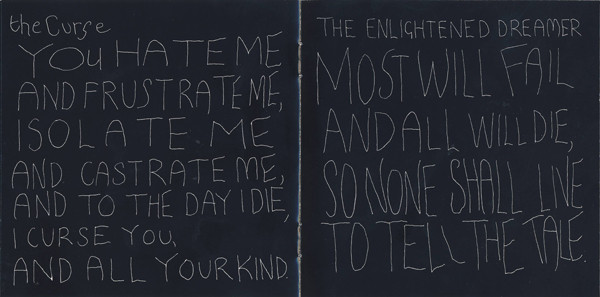 the Curse
YOU HATE ME
AND FRUSTRATE ME,
ISOLATE ME
AND CASTRATE ME,
AND TO THE DAY I DIE,
I CURSE YOU,
AND ALL YOUR KIND.
THE ENLIGHTENED DREAMER
MOST WILL FAIL
AND ALL WILL DIE,
SO NONE SHALL LIVE
TO TELL THE TALE.